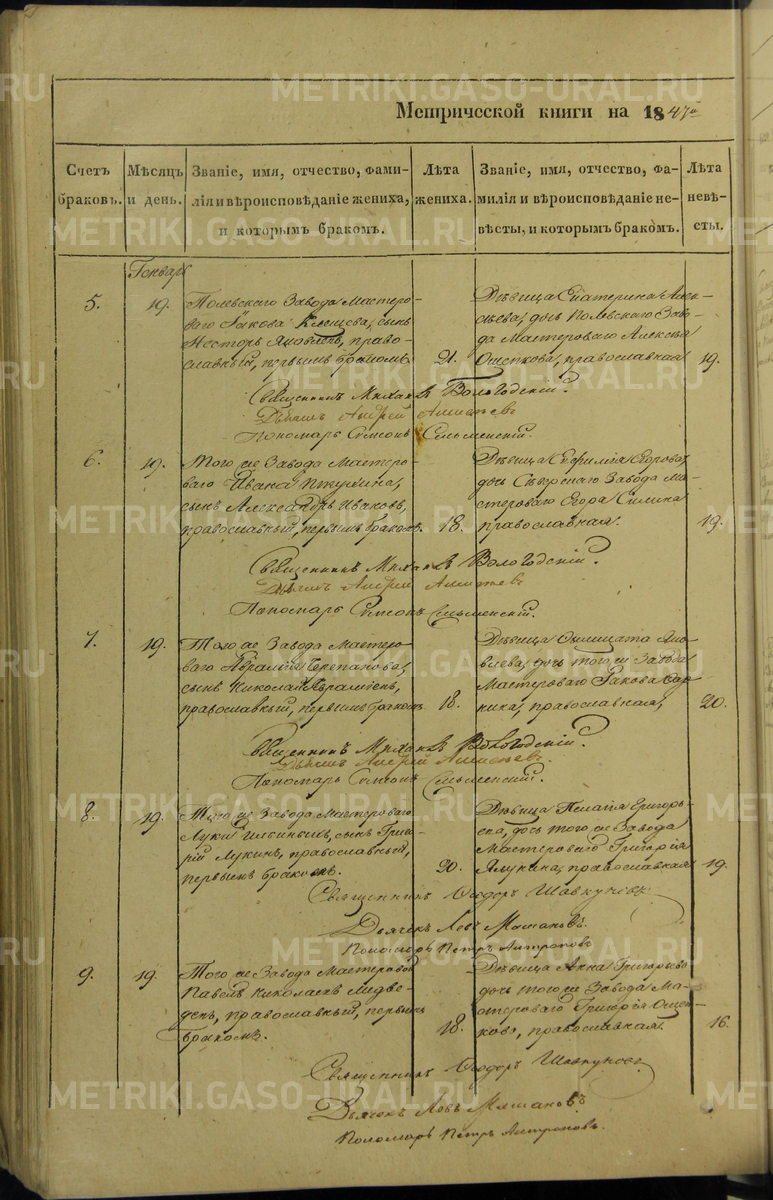 METRIKI.GASO-URAL.RU
Метрической книги на 1847й
Счетъ браковъ.
Мѣсяцъ и день.
Званіе, имя, отчество, фами-
лія и вѣроисповѣданіе жениха,
и которымъ бракомъ.
Лѣта жениха.
Званіе, имя, отчество, фа-
милія и вѣроисповѣданіе не-
вѣсты, и которымъ бракомъ.
Лѣта невѣсты.
Генварь
5.
19.
Полевскаго Завода Мастеро-
ваго Іакова Клещева, сынъ
Несторъ Яковлевъ, право-
славный, первымъ бракомъ
21.
Дѣвица Екатерина Алек-
сѣева, дочь Полевскаго Заво-
да Мастероваго Алексѣя
Ощепкова, православная
19.
Священникъ Михаилъ Вологодскій.
Андрей
Пономарь Симеонъ
6.
19.
Того же Завода Мастеро-
ваго Ивана
сынъ Александръ Ивановъ,
православный, первымъ бракомъ.
18.
Дѣвица Евфимія Егорова,
дочь Сѣверскаго Завода Ма-
стероваго Егора Силина
православная.
19.
Священникъ Михаилъ Вологодскій.
Андрей
Пономарь Симеонъ
7.
19.
Того же Завода Мастеро-
ваго Авраамія Черепанова,
сынъ Николай Авраміевъ,
православный, первымъ бракомъ
18.
Дѣвица Яко-
влева, дочь того же Завода
Мастероваго Іакова
православная,
20.
Священникъ Михаилъ Вологодскій.
Андрей
Пономарь Симеонъ
8.
19.
Того же Завода Мастероваго
Луки сынъ Григо-
рій Лукинъ, православный,
первымъ бракомъ.
20.
Дѣвица Пелагія Григорье-
ва, дочь того же Завода
Мастероваго Григорія
православная
19.
Священникъ Ѳеодоръ Шавкуновъ
Дьячекъ Левъ
Пономарь Петръ Антроповъ
9.
19.
Того же Завода Мастеровой
Павелъ Николаевъ Медве-
девъ, православный, первымъ
бракомъ.
18.
Дѣвица Анна Григорьева
дочь того же Завода Ма-
стероваго Григорія Ощеп-
кова, православная.
16.
Священникъ Ѳеодоръ Шавкуновъ
Дьячекъ Левъ
Пономарь Петръ Антроповъ.